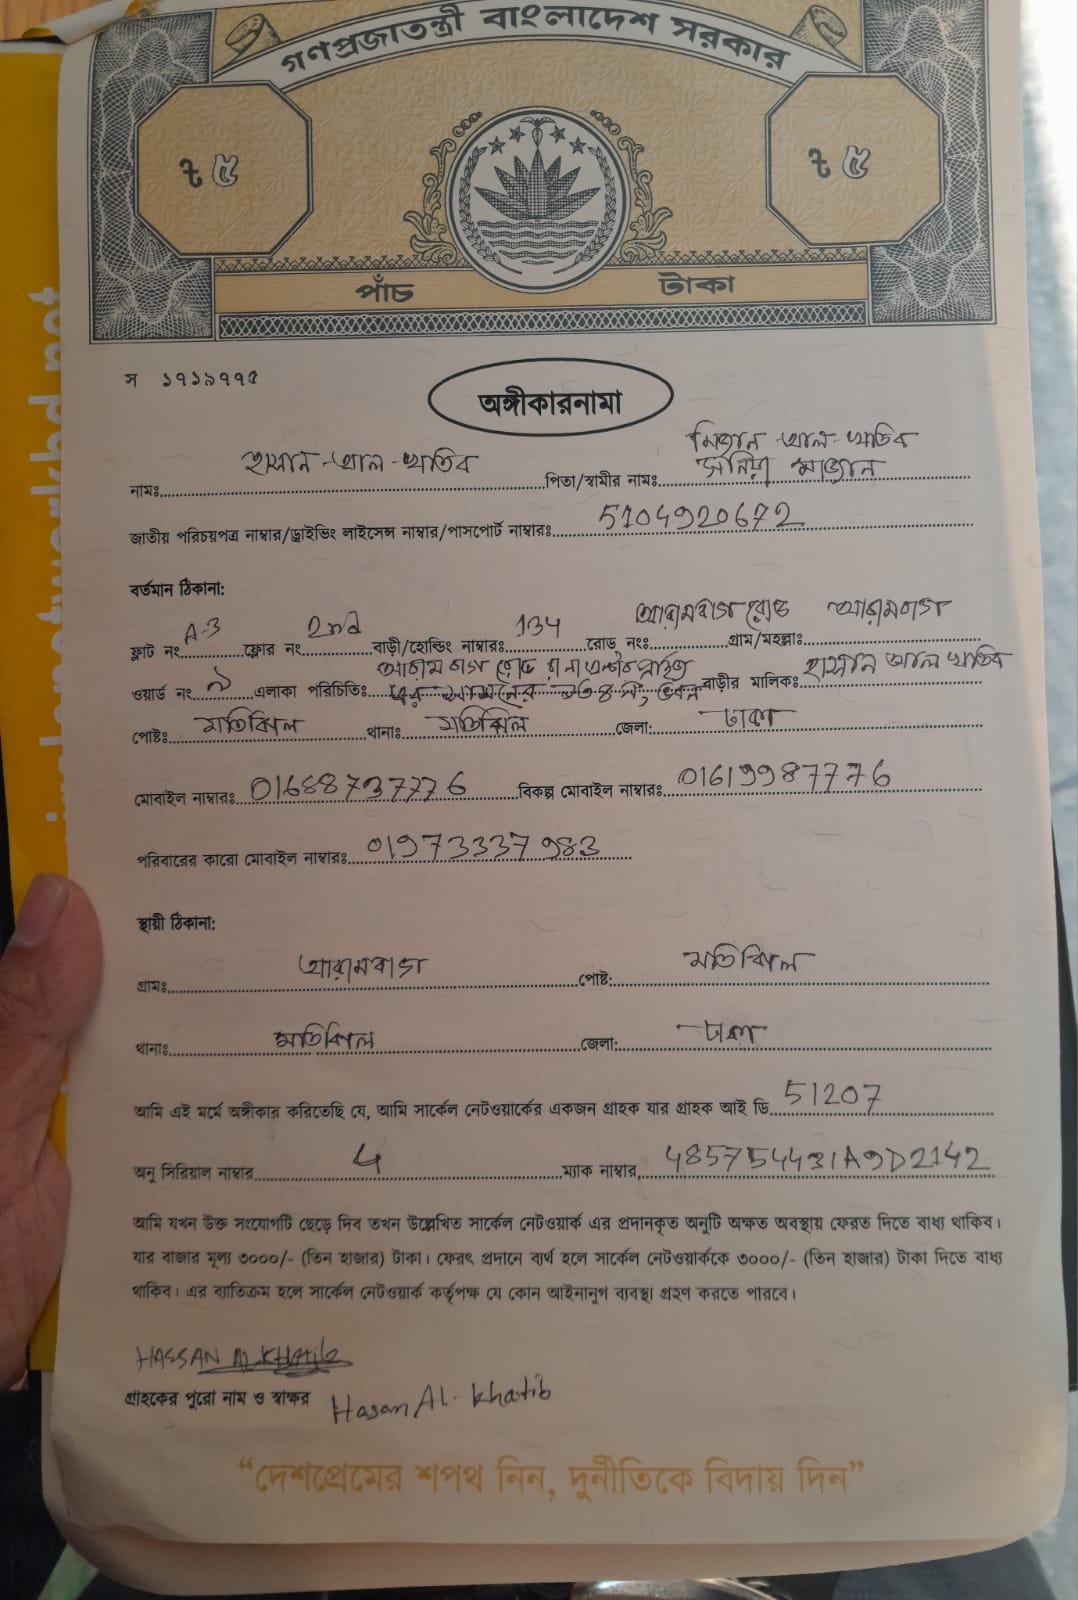 গণপ্রজাতন্ত্রী বাংলাদেশ সরকার
৳ ৫ ৳ ৫
পাঁচ টাকা
স ১৭১৯৭৭৫
অঙ্গীকারনামা
মিজান-আল-খাতিব
নামঃ হাসান-আল-খাতিব পিতা/স্বামীর নামঃ সনিয়া
জাতীয় পরিচয়পত্র নাম্বার/ড্রাইভিং লাইসেন্স নাম্বার/পাসপোর্ট নাম্বারঃ 5104920672
বর্তমান ঠিকানা:
ফ্লাট নং A-3 ফ্লোর নং 2nd বাড়ী/হোল্ডিং নাম্বারঃ 134 রোড নংঃ আরামবাগ রোড গ্রাম/মহল্লাঃ আরামবাগ
আরাম বাগ রোড রানা এন্টারপ্রাইজ
ওয়ার্ড নং ৯ এলাকা পরিচিতিঃ এর সামনের ১৩৪ বাড়ীর মালিকঃ হাসান আল খাতিব
পোষ্টঃ মতিঝিল থানাঃ মতিঝিল জেলা: ঢাকা
মোবাইল নাম্বারঃ 01688737776 বিকল্প মোবাইল নাম্বারঃ 01619987776
পরিবারের কারো মোবাইল নাম্বারঃ 01973337983
স্থায়ী ঠিকানা:
গ্রামঃ আরামবাগ পোষ্ট: মতিঝিল
থানাঃ মতিঝিল জেলা: ঢাকা
আমি এই মর্মে অঙ্গীকার করিতেছি যে, আমি সার্কেল নেটওয়ার্কের একজন গ্রাহক যার গ্রাহক আই ডি 51207
অনু সিরিয়াল নাম্বার 4 ম্যাক নাম্বার 485754431A9D2142
আমি যখন উক্ত সংযোগটি ছেড়ে দিব তখন উল্লেখিত সার্কেল নেটওয়ার্ক এর প্রদানকৃত অনুটি অক্ষত অবস্থায় ফেরত দিতে বাধ্য থাকিব।
যার বাজার মূল্য ৩০০০/- (তিন হাজার) টাকা। ফেরৎ প্রদানে ব্যর্থ হলে সার্কেল নেটওয়ার্ককে ৩০০০/- (তিন হাজার) টাকা দিতে বাধ্য
থাকিব। এর ব্যাতিক্রম হলে সার্কেল নেটওয়ার্ক কর্তৃপক্ষ যে কোন আইনানুগ ব্যবস্থা গ্রহণ করতে পারবে।
HASSAN AL KHATIB
গ্রাহকের পুরো নাম ও স্বাক্ষর Hasan Al-Khatib
“দেশপ্রেমের শপথ নিন, দুর্নীতিকে বিদায় দিন”